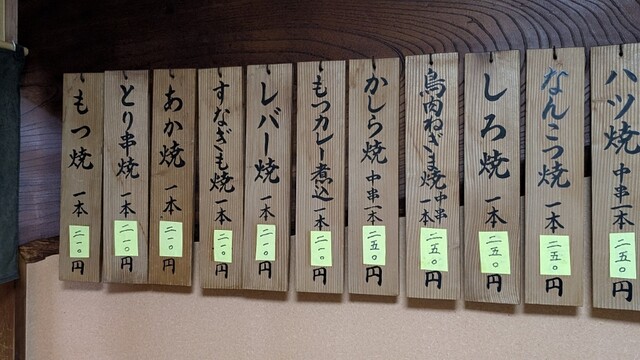 ハツ焼 一本 二五〇円
なんこつ焼 一本 二五〇円
しろ焼 一本 二五〇円
鳥肉ねぎま焼 中串一本 二五〇円
かしら焼 中串一本 二五〇円
もつカレー煮込 一本 二一〇円
レバー焼 一本 二一〇円
すなぎも焼 一本 二一〇円
あか焼 一本 二一〇円
とり串焼 一本 二一〇円
もつ焼 一本 二一〇円